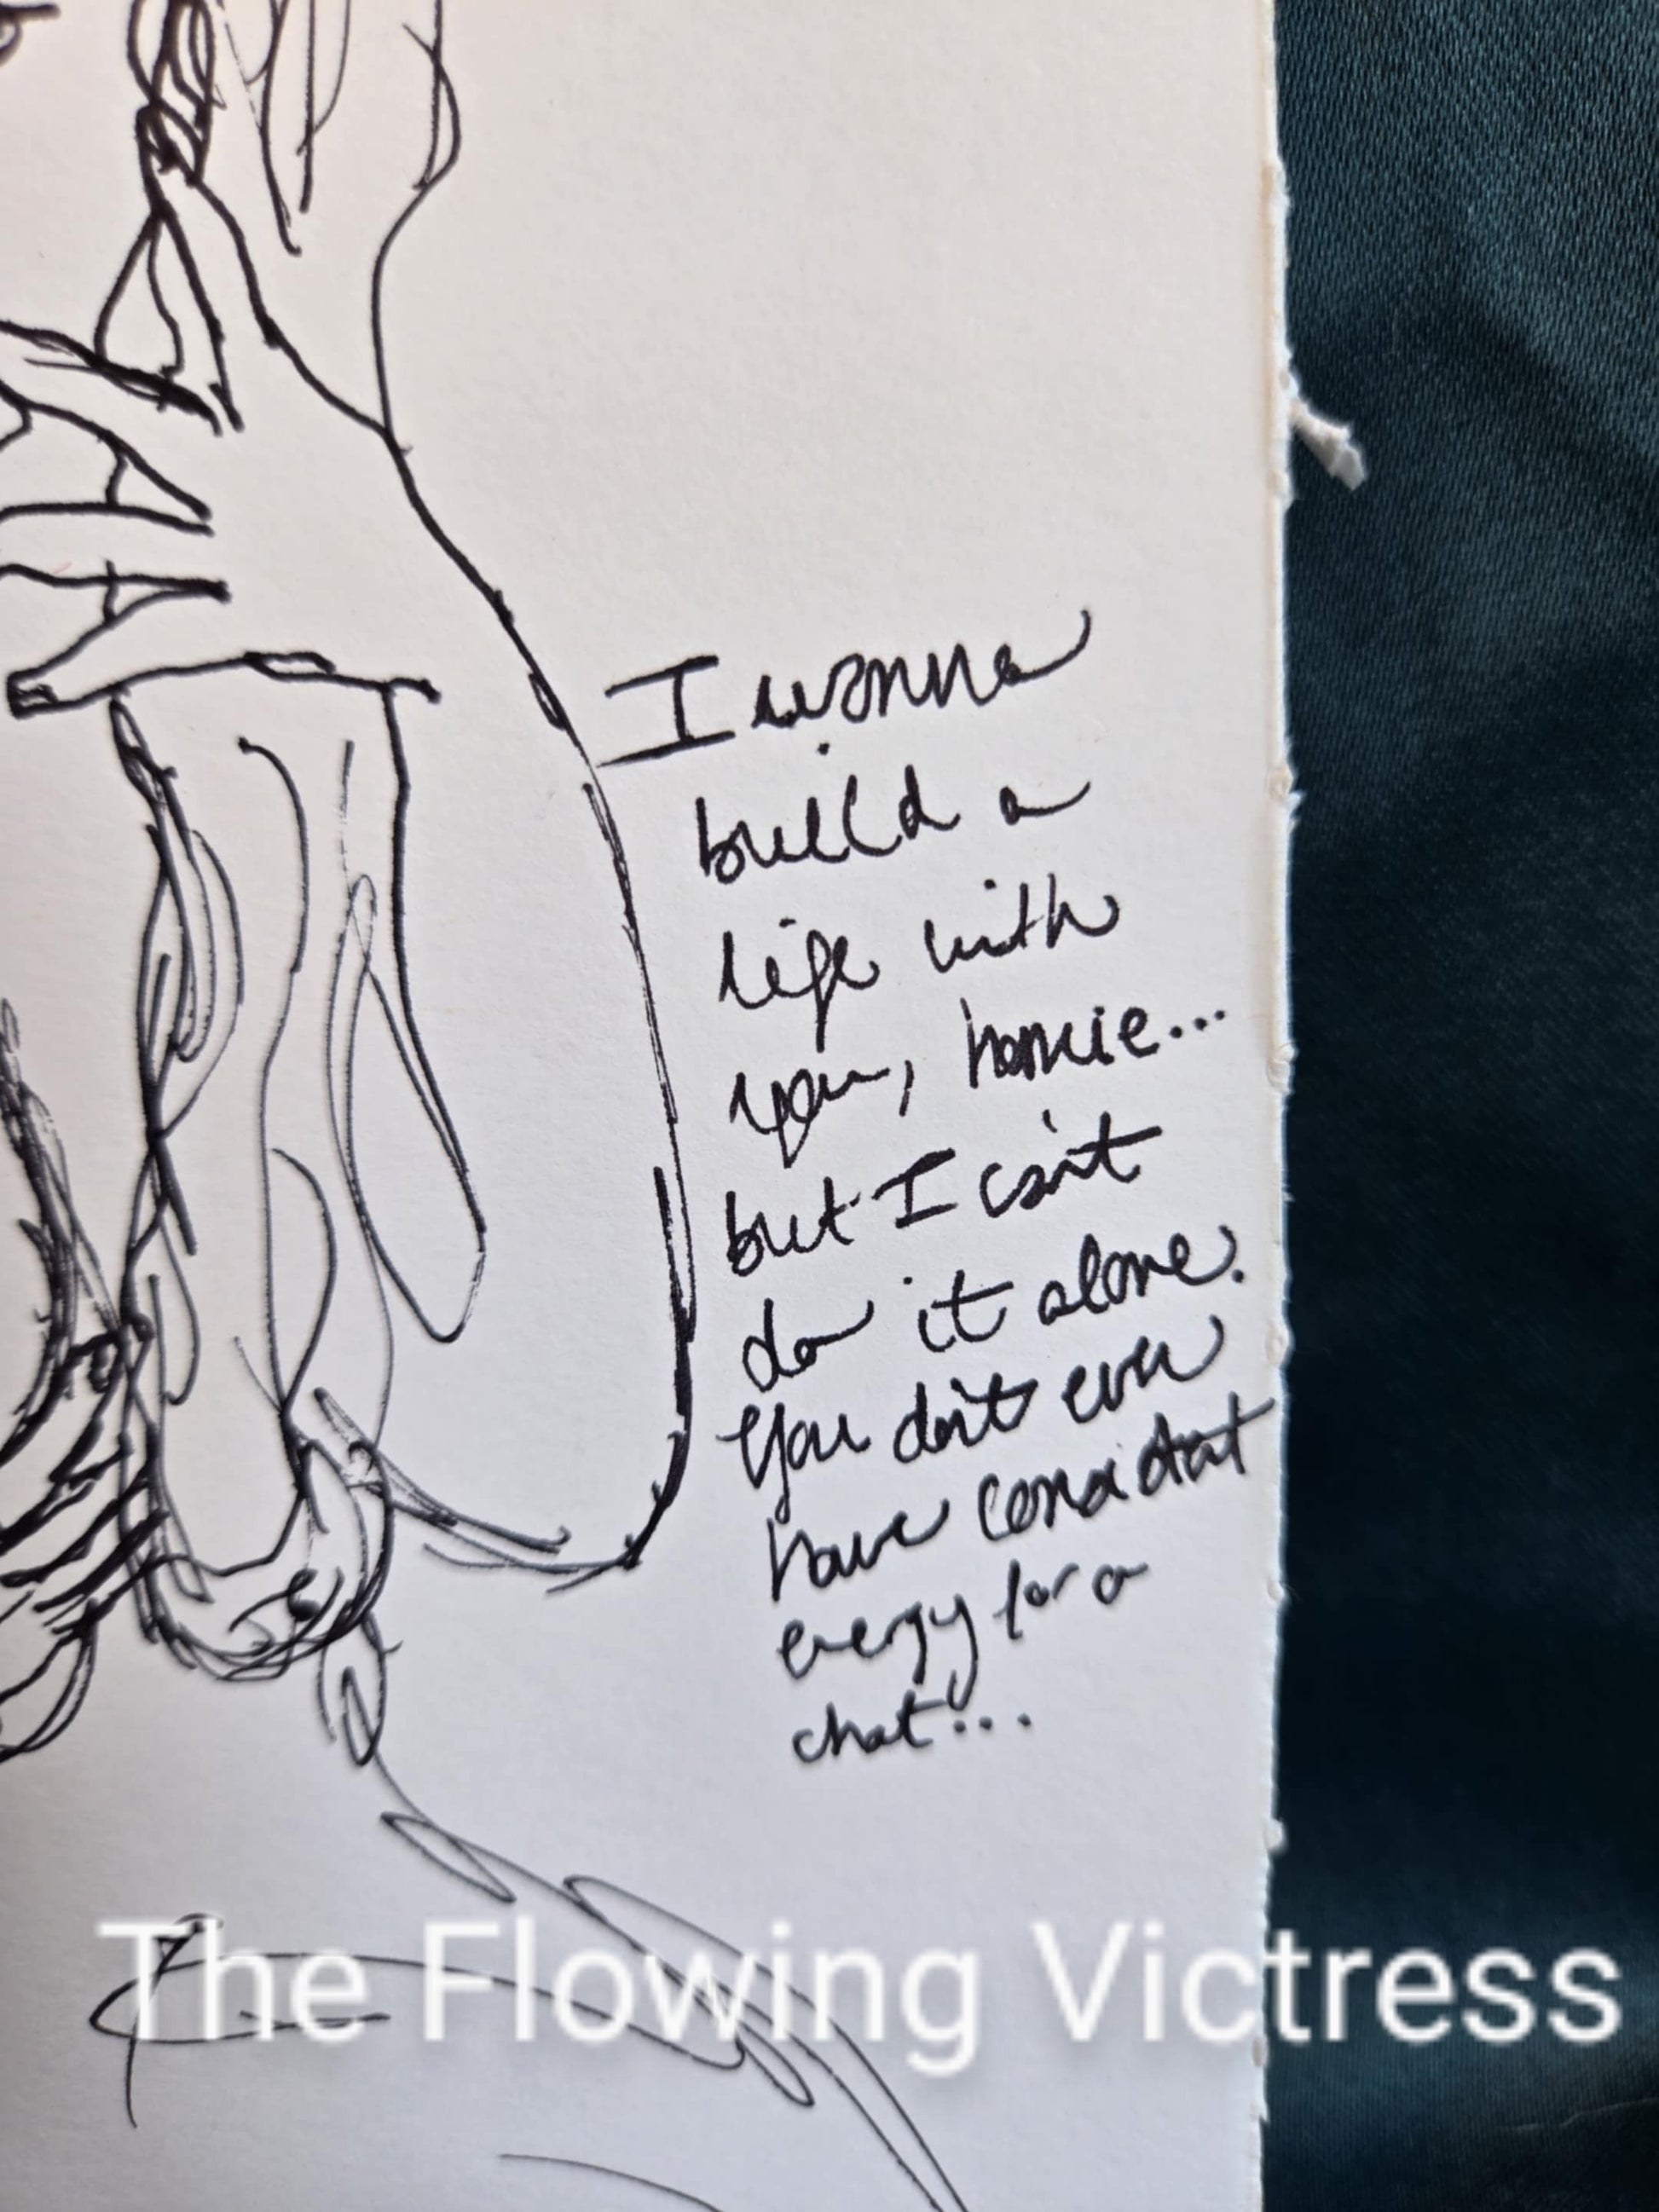 I wanna
build a
life with
you, homie...
but I can't
do it alone.
You don't even
have consistent
energy for a
chat...
The Flowing Victress